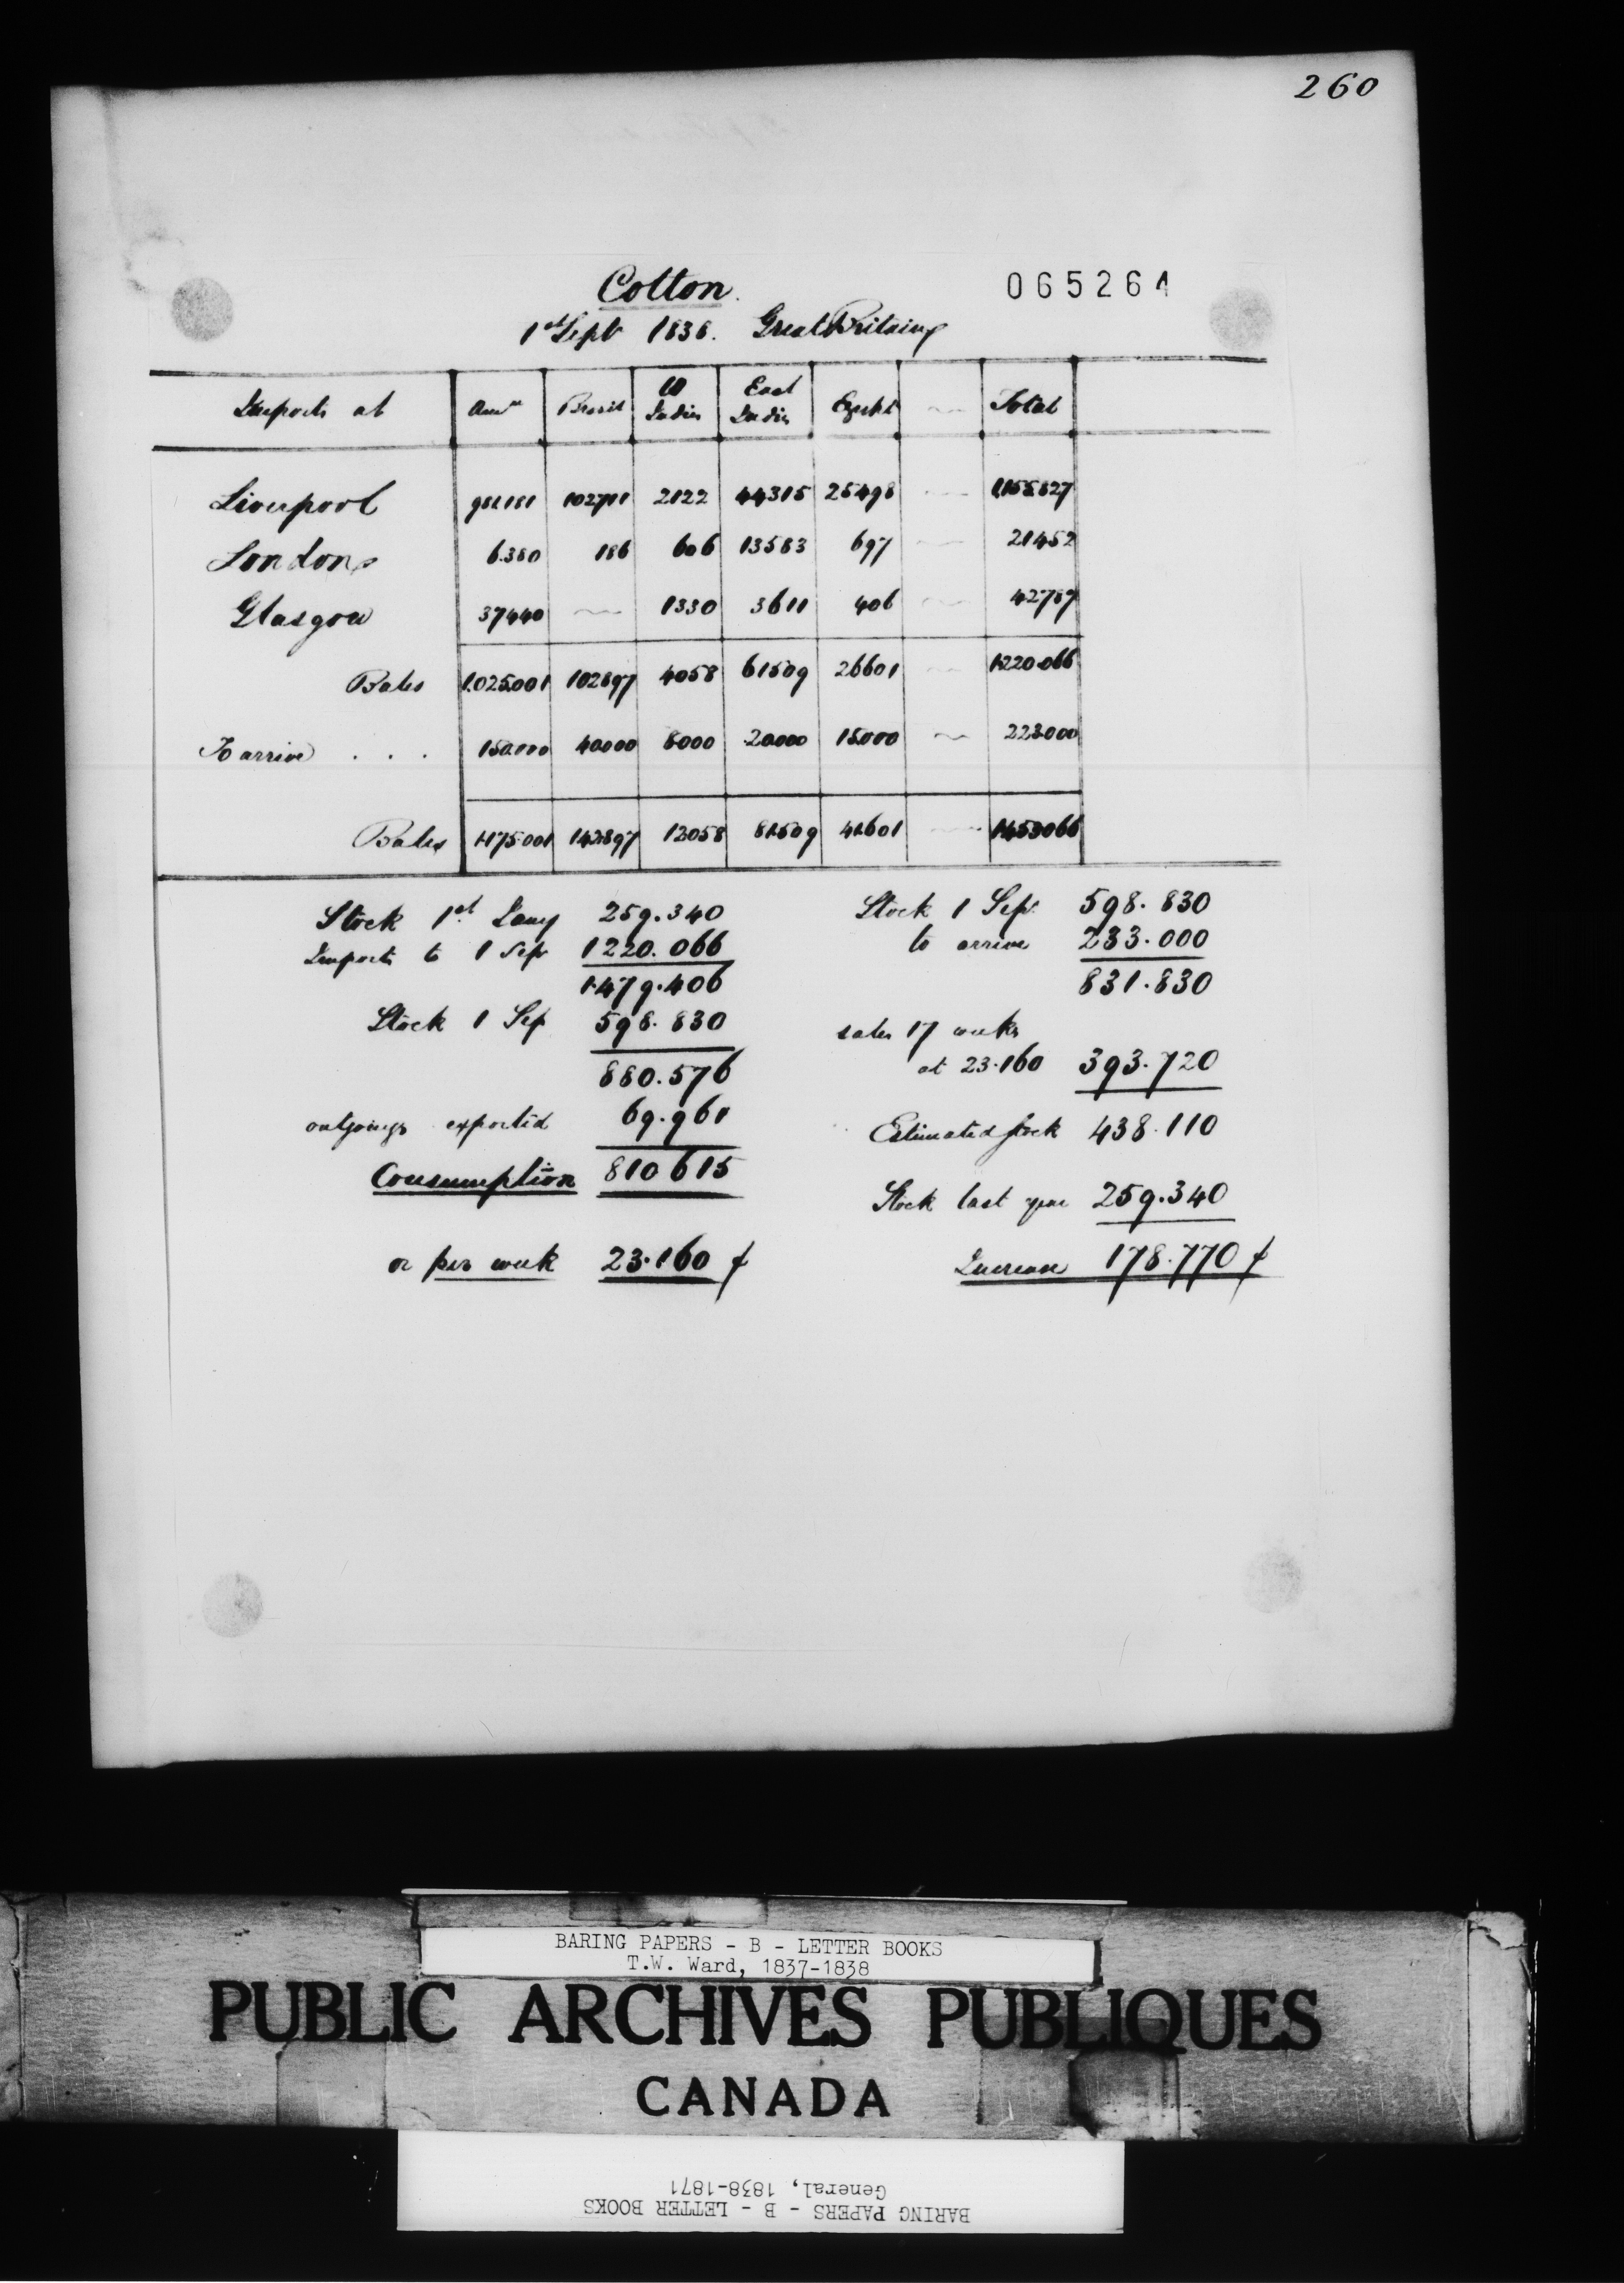 260
Cotton.
065264
1st Sept 1838. Great Britain
Imports at Amn Brazil W Indies East Indies Egypt Total
Liverpool 981181 102711 2122 44315 25498 1,155.827
London 6.380 186 606 13583 697 21452
Glasgow 37440 1330 3611 406 42787
Bales 1.025.001 102897 4058 61509 26601 1.220.066
To arrive . . . 150.000 40000 8000 20000 15000 223.000
Bales 1.175.001 142897 12058 81509 41601 1453066
Stock 1st Jany 259.340
Imports to 1 Sep 1220.066
1.479.406
Stock 1 Sep 598.830
880.576
outgoings exported 69.961
Consumption 810615
or per week 23.160
Stock 1 Sep. 598.830
to arrive 233.000
831.830
sales 17 weeks
at 23.160 393.720
Estimated stock 438.110
Stock last year 259.340
Increase 178.770
BARING PAPERS - B - LETTER BOOKS
T.W. Ward, 1837-1838
PUBLIC ARCHIVES PUBLIQUES
CANADA
BARING PAPERS - B - LETTER BOOKS
General, 1838-1871